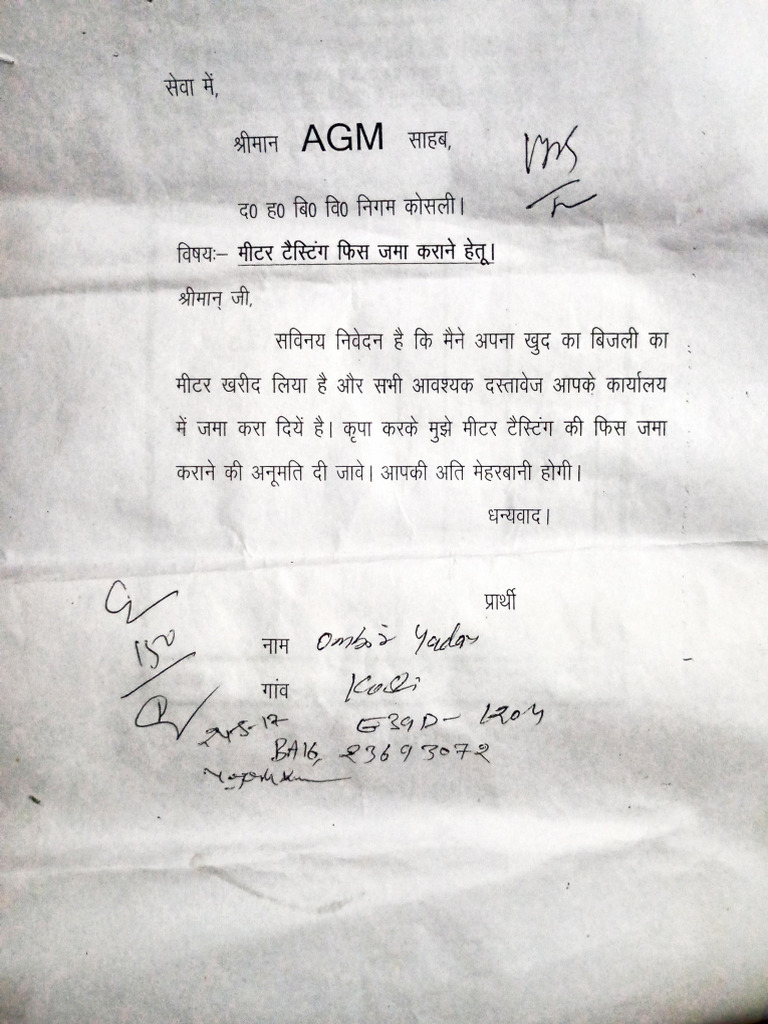 सेवा में,
श्रीमान AGM साहब,
द0 ह0 बि0 वि0 निगम कोसली।
विषयः– मीटर टैस्टिंग फिस जमा कराने हेतू।
श्रीमान् जी,
सविनय निवेदन है कि मैने अपना खुद का बिजली का
मीटर खरीद लिया है और सभी आवश्यक दस्तावेज आपके कार्यालय
में जमा करा दियें है। कृपा करके मुझे मीटर टैस्टिंग की फिस जमा
कराने की अनूमति दी जावे। आपकी अति मेहरबानी होगी।
धन्यवाद।
प्रार्थी
150
नाम Ombir Yadav
गांव
E39D-
BA16, 23693072